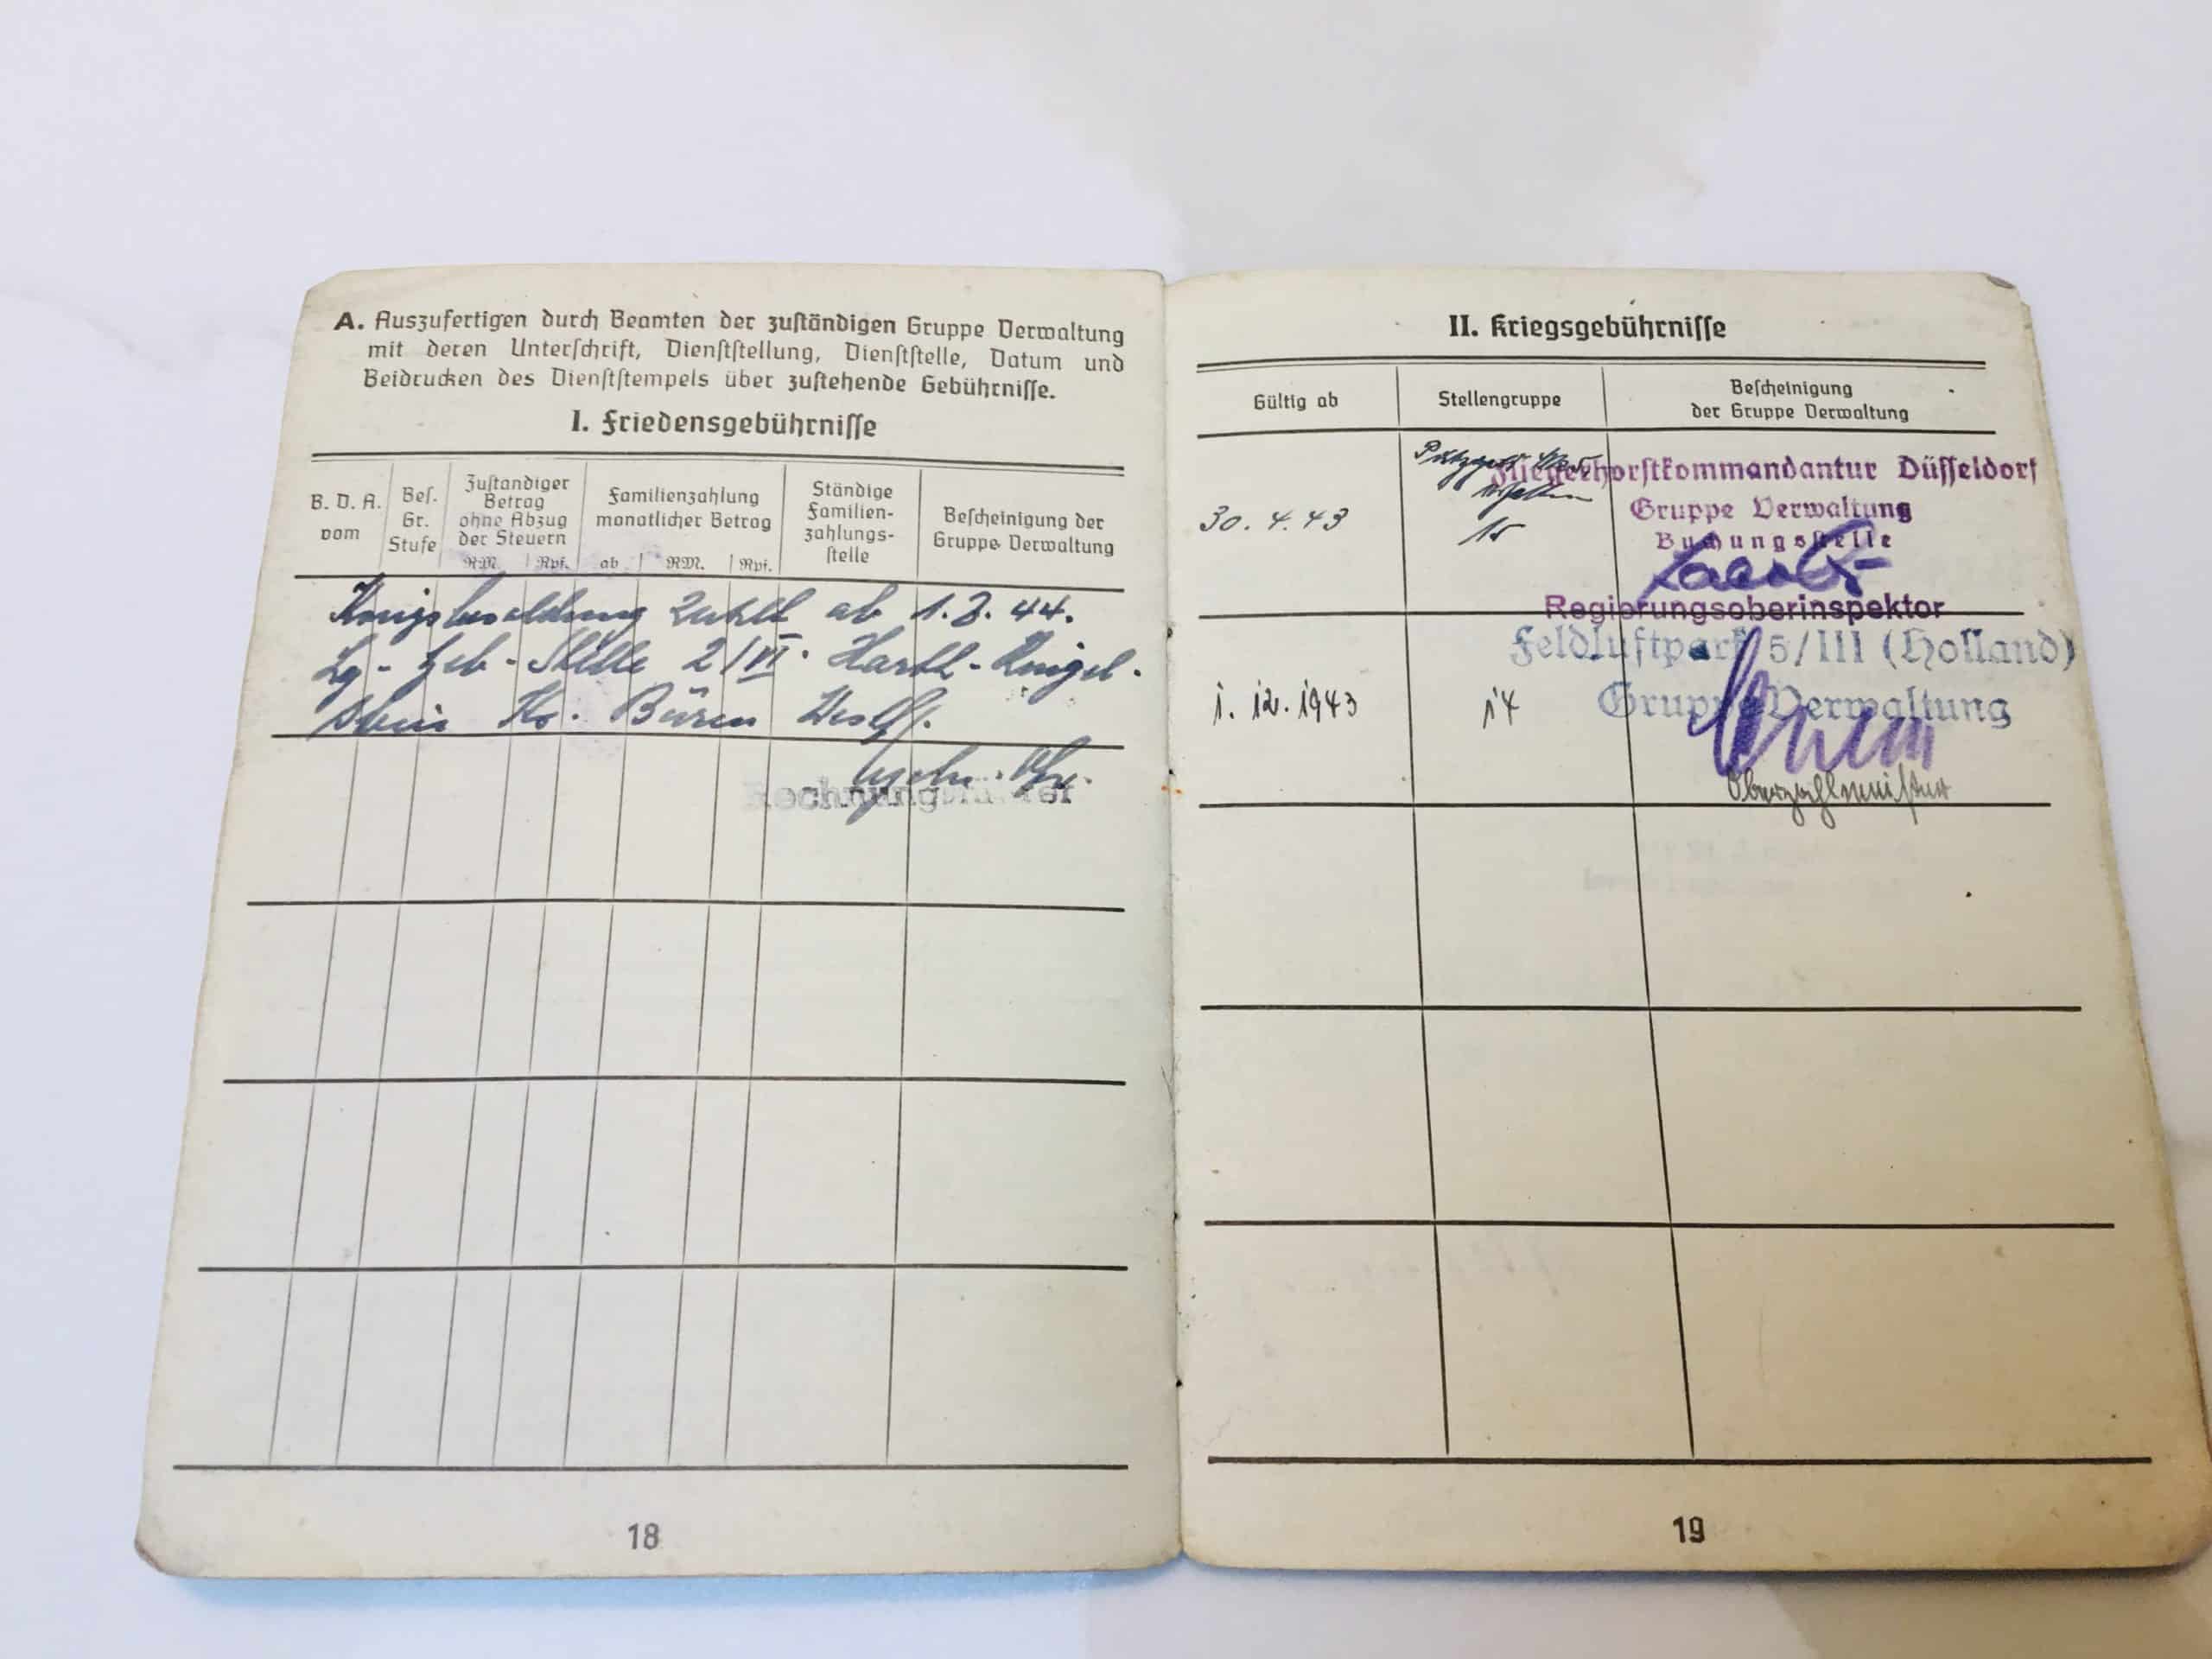 A. Auszufertigen durch Beamten der zuständigen Gruppe Verwaltung
mit deren Unterschrift, Dienststellung, Dienststelle, Datum und
Beidrucken des Dienststempels über zustehende Gebührnisse.
I. Friedensgebührnisse
B. D. A.
vom
Bes.
Gr.
Stufe
Zuständiger
Betrag
ohne Abzug
der Steuern
RM. Rpf.
Familienzahlung
monatlicher Betrag
ab RM. Rpf.
Ständige
Familien-
zahlungs-
stelle
Bescheinigung der
Gruppe Verwaltung
Kriegsbesoldung zahlt ab 1. 8. 44.
Lg- Geb- Stelle 2/VI. Harth-Ringel.
stein Kr. Büren Westf.
18
II. Kriegsgebührnisse
Gültig ab
Stellengruppe
Bescheinigung
der Gruppe Verwaltung
30. 4. 43
15
Fliegerhorstkommandantur Düsseldorf
Gruppe Verwaltung
Buchungsstelle
Regierungsoberinspektor
1. 12. 1943
14
Feldluftpark 5/III (Holland)
Gruppe Verwaltung
Oberzahlmeister
19